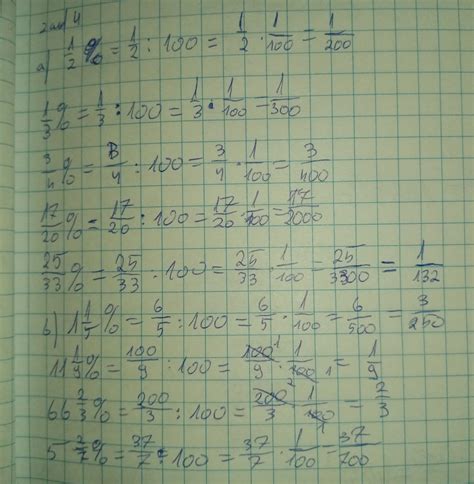 zad 4
a) 1/2 % = 1/2 : 100 = 1/2 · 1/100 = 1/200
1/3 % = 1/3 : 100 = 1/3 · 1/100 = 1/300
3/4 % = 3/4 : 100 = 3/4 · 1/100 = 3/400
17/20 % = 17/20 : 100 = 17/20 · 1/100 = 17/2000
25/33 % = 25/33 : 100 = 25/33 · 1/100 = 25/3300 = 1/132
b) 1 1/5 % = 6/5 : 100 = 6/5 · 1/100 = 6/500 = 3/250
11 1/9 % = 100/9 : 100 = 100/9 · 1/100 = 1/9
66 2/3 % = 200/3 : 100 = 200/3 · 1/100 = 2/3
5 2/7 % = 37/7 : 100 = 37/7 · 1/100 = 37/700